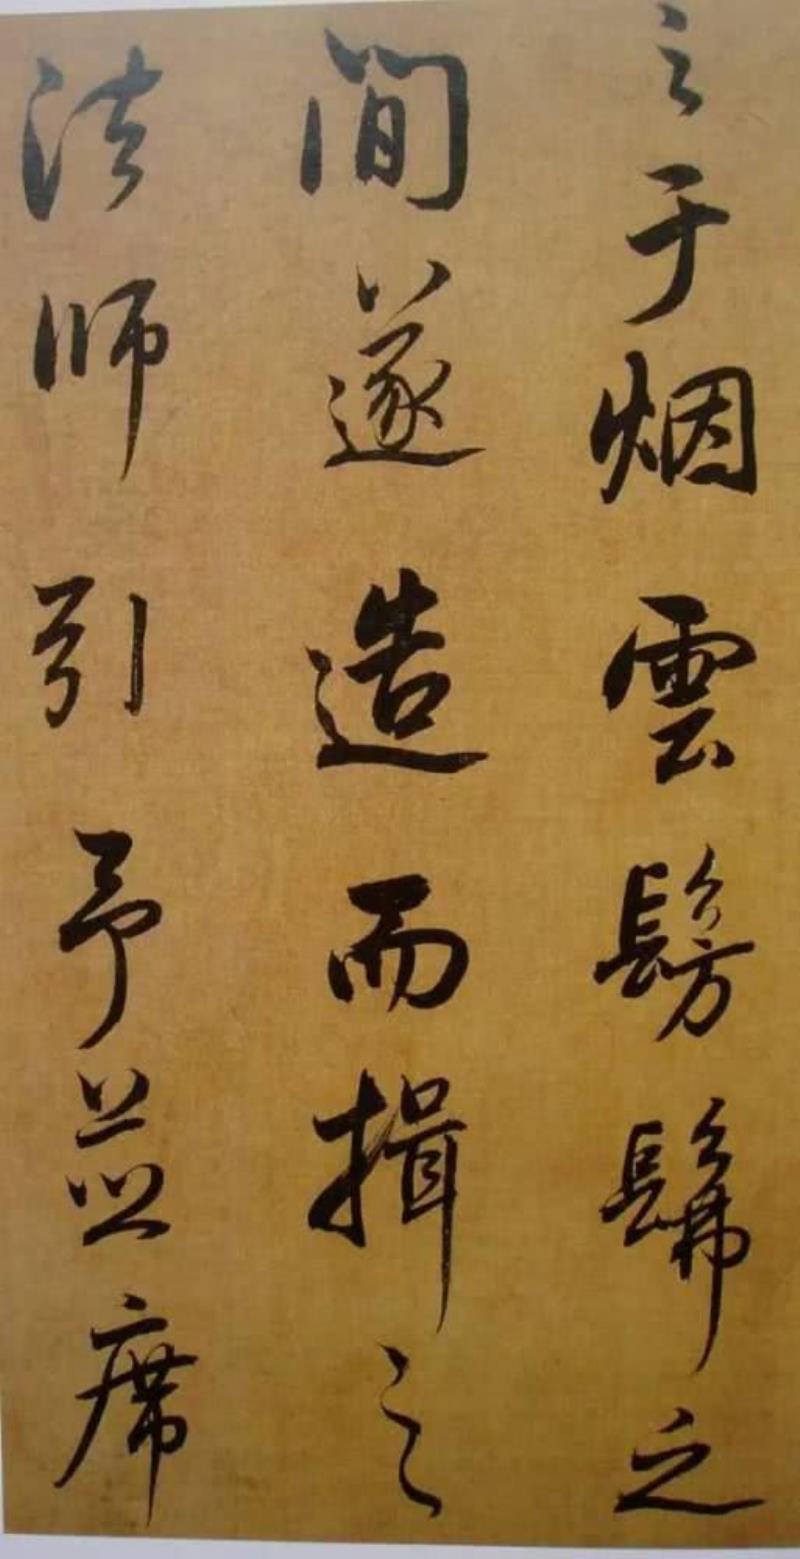 之于烟雲髣髴之
間遂造而揖之
法師引予並席